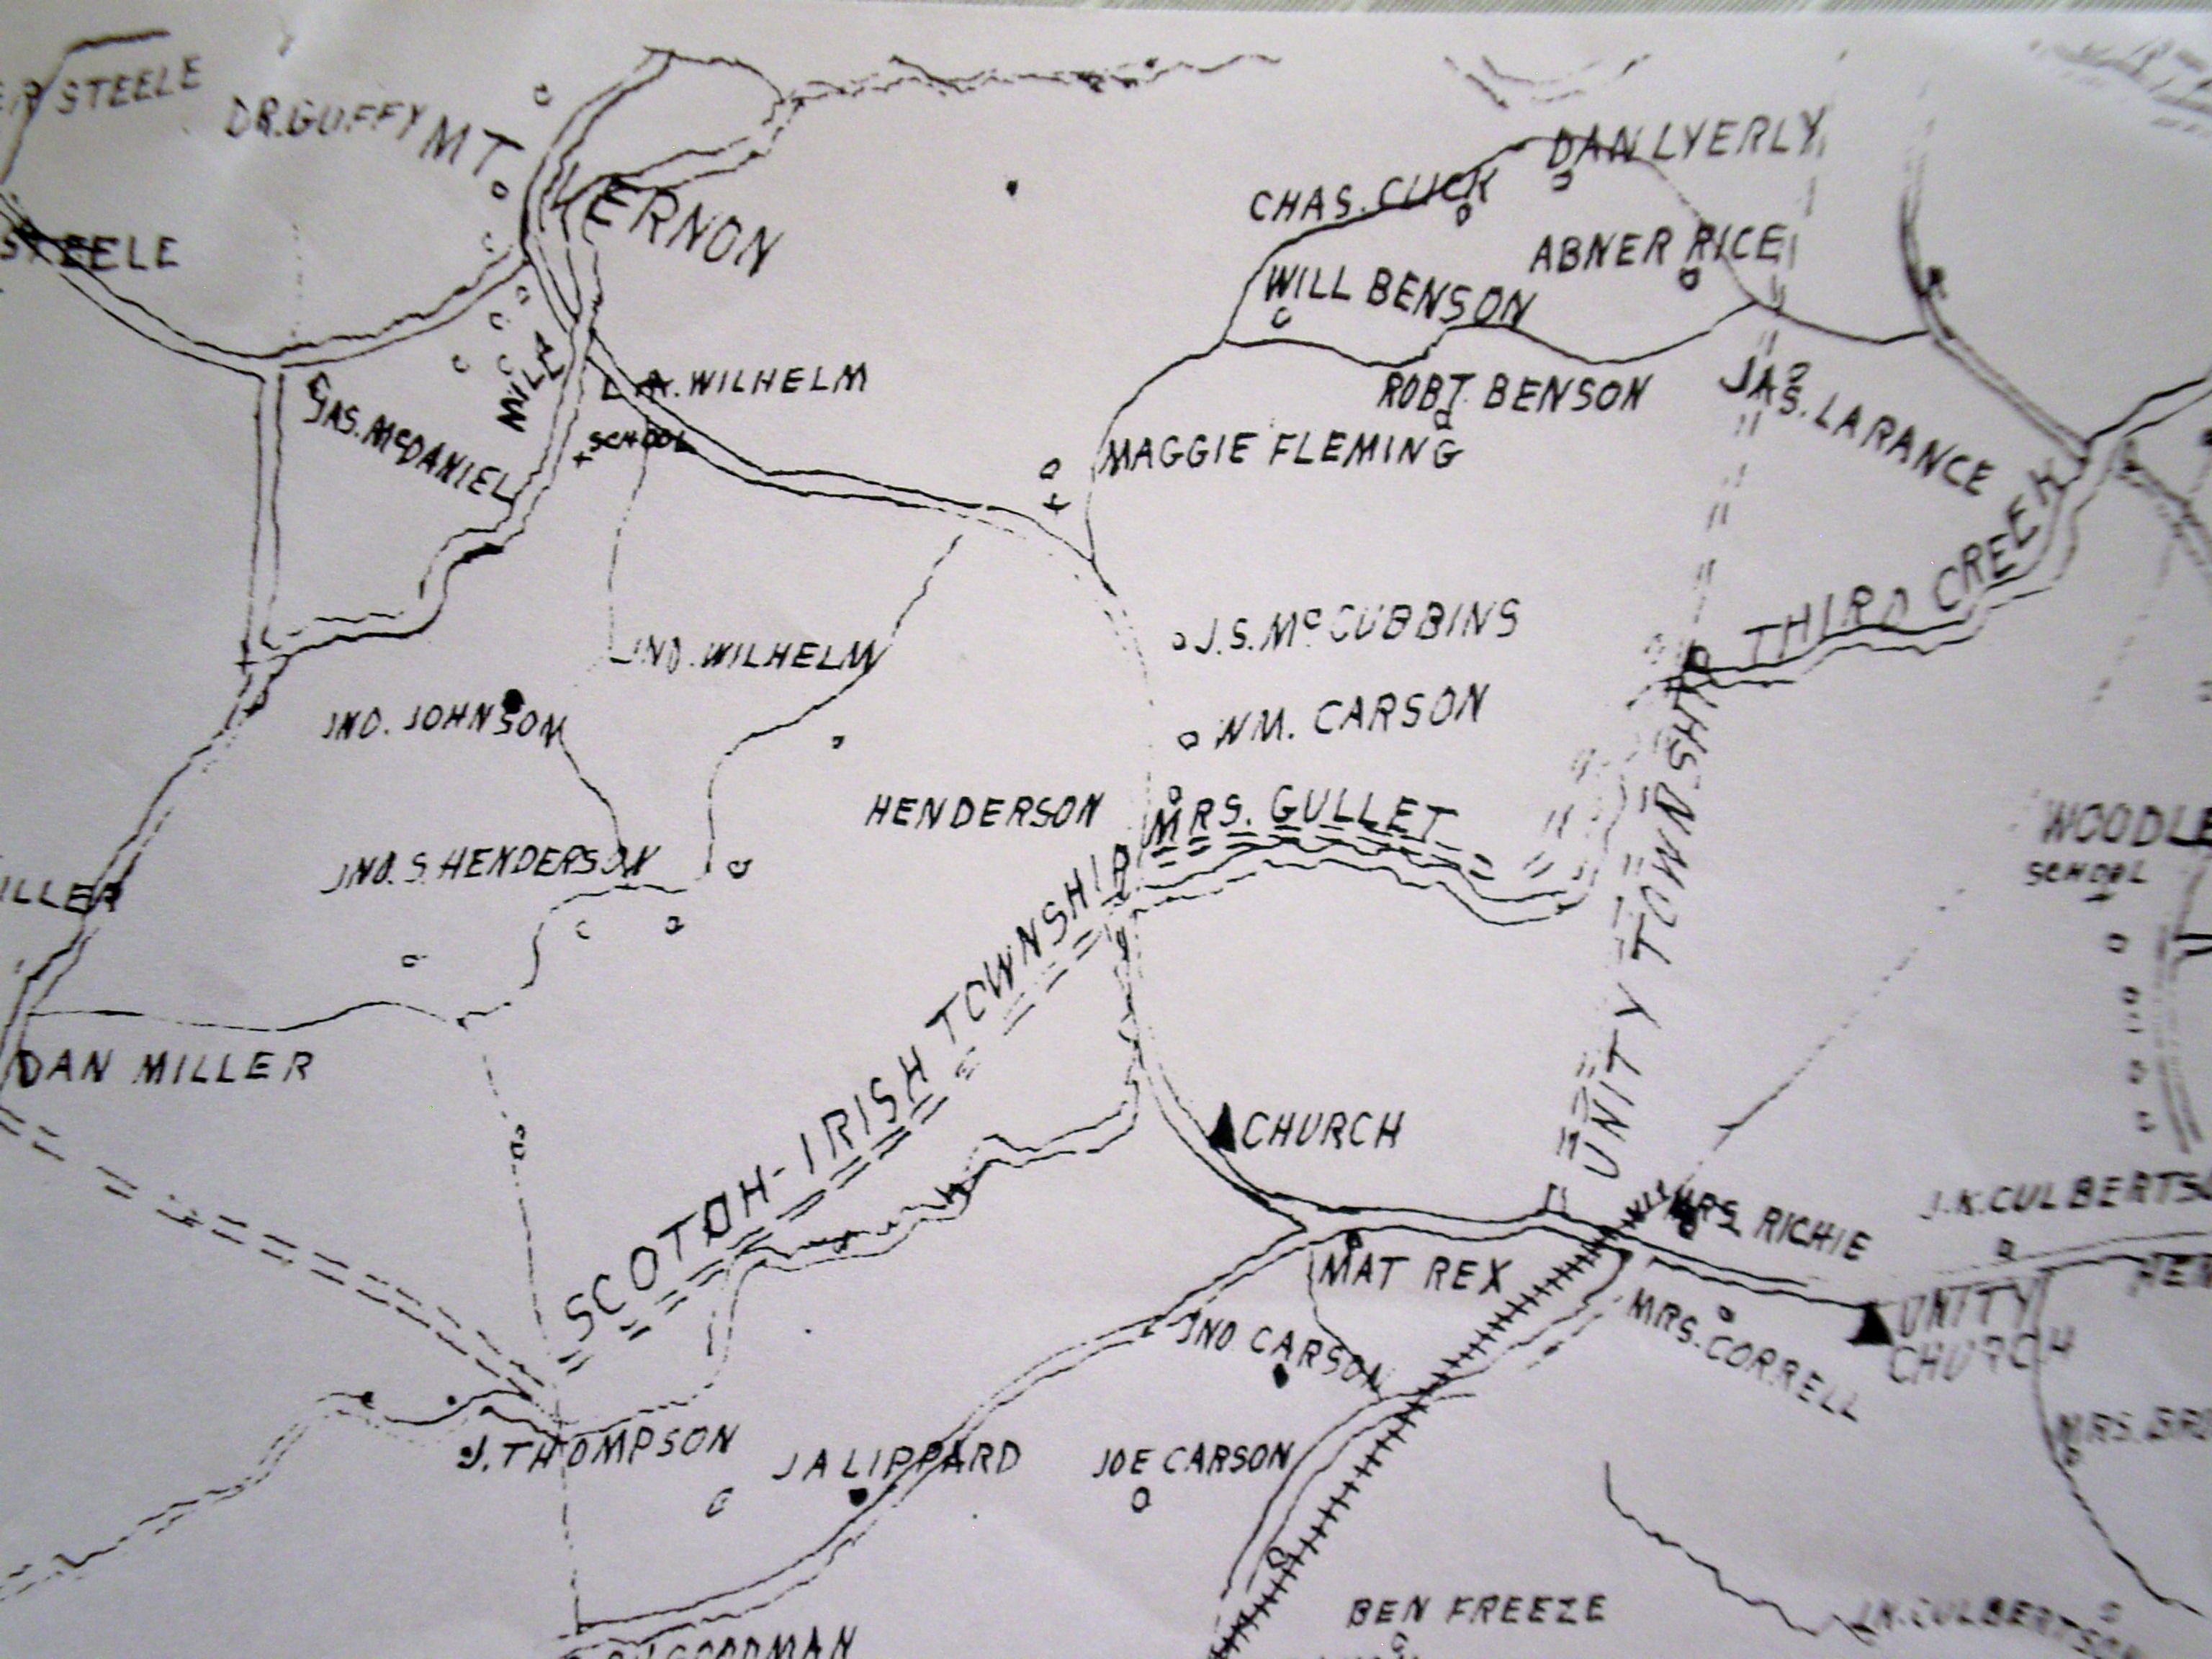 STEELE
DR. GUFFY
MT. VERNON
DAN LYERLY
CHAS. CLICK
STEELE
ABNER RICE
WILL BENSON
MILL
A. WILHELM
ROBT. BENSON
JAS. LARANCE
JAS. McDANIEL
SCHOOL
MAGGIE FLEMING
THIRD CREEK
J.S. McCUBBINS
JNO. WILHELM
JNO. JOHNSON
WM. CARSON
HENDERSON
MRS. GULLET
JNO. S. HENDERSON
SCHOOL
DAN MILLER
SCOTCH-IRISH TOWNSHIP
UNITY TOWNSHIP
CHURCH
MRS. RICHIE
MAT REX
UNITY
CHURCH
JNO CARSON
MRS. CORRELL
J. THOMPSON
J A LIPPARD
JOE CARSON
BEN FREEZE
GOODMAN